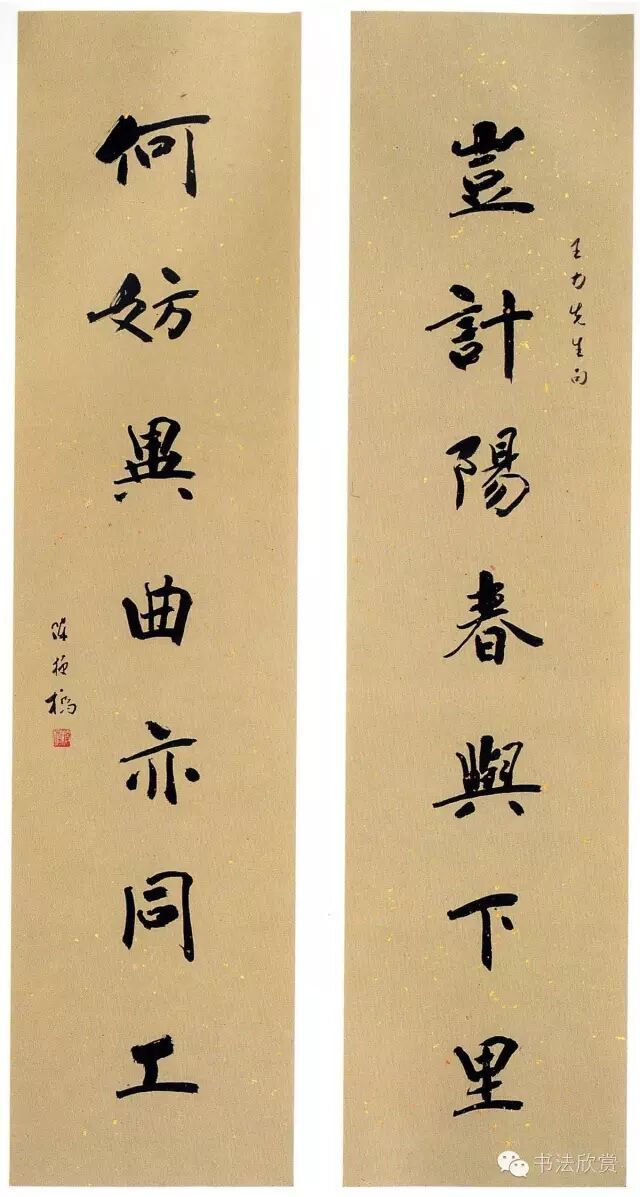 王力先生句
豈計陽春與下里
何妨異曲亦同工
陈梗橋
书法欣赏